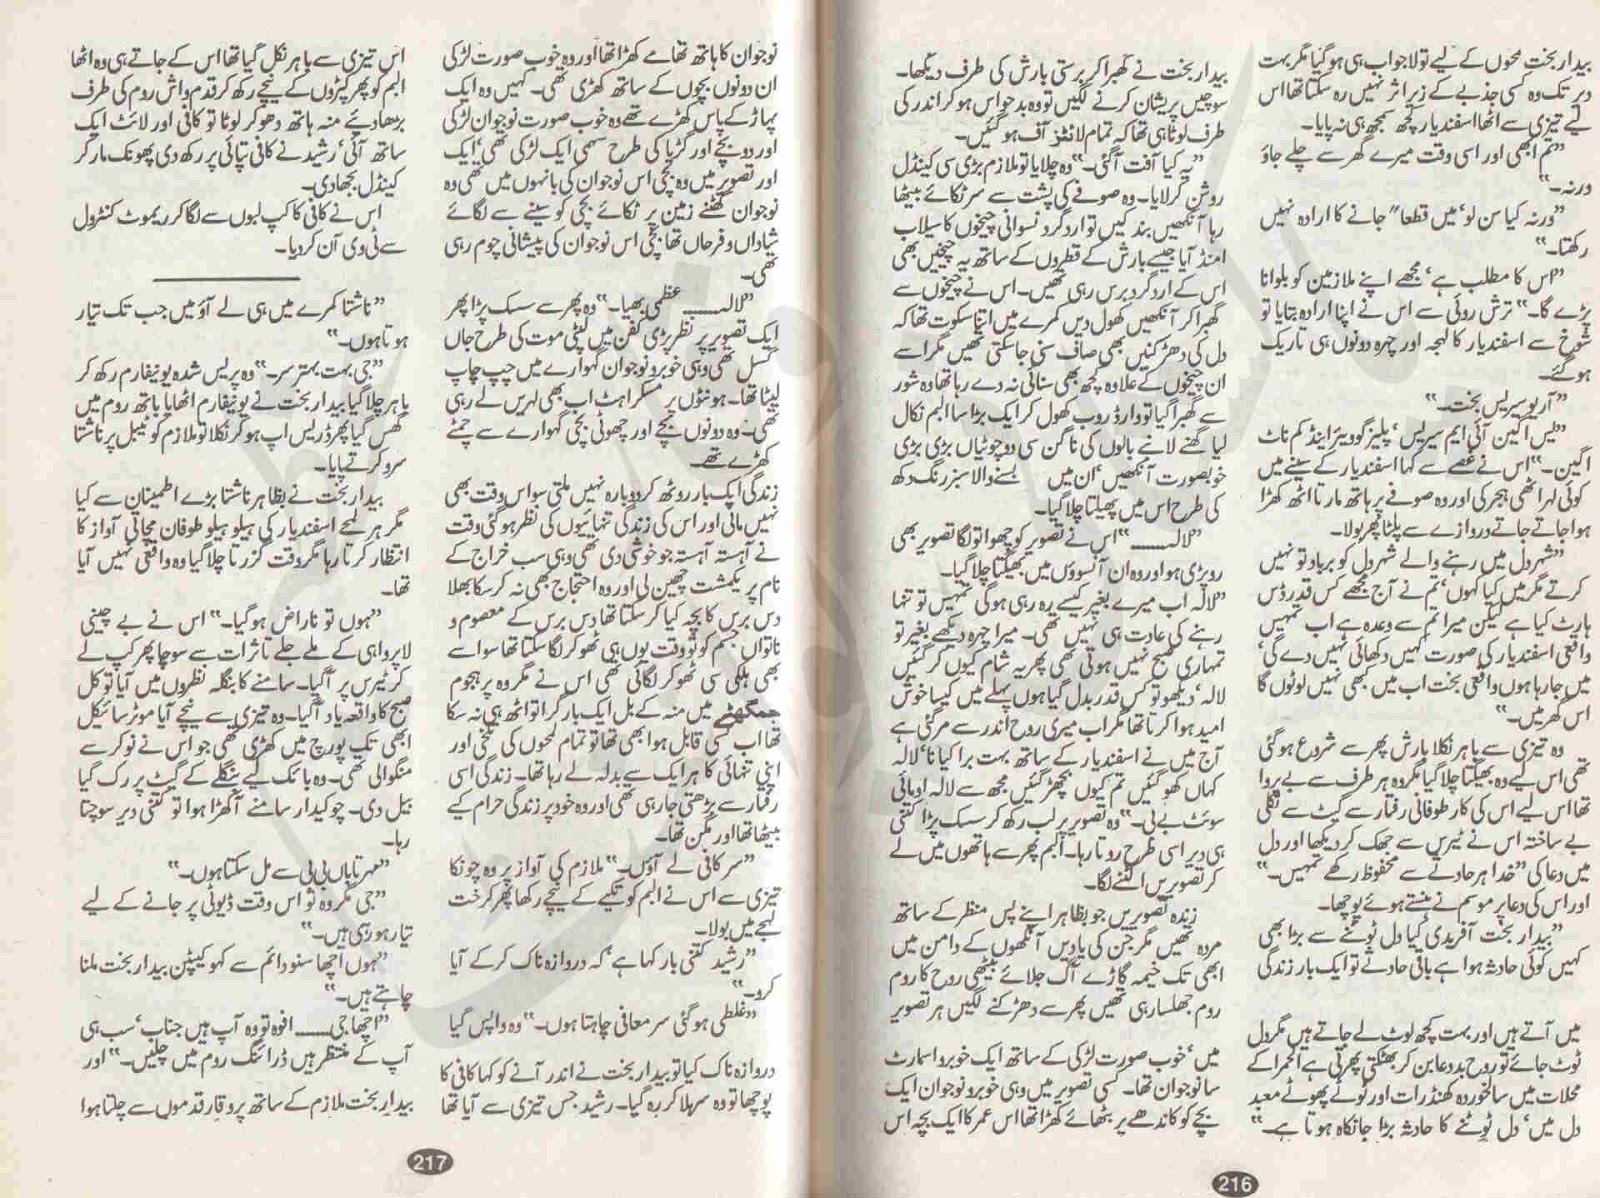 بیدار بخت لمحوں کے لیے تو لاجواب ہی ہو گیا مگر بہت
دیر تک وہ کسی جذبے کے زیر اثر نہیں رہ سکتا تھا اس
لیے تیزی سے اٹھا اسفندیار کچھ سمجھ ہی نہ پایا۔
”تم ابھی اور اسی وقت میرے گھر سے چلے جاؤ
ورنہ۔“
”ورنہ کیا سن لو‘ میں قطعاً جانے کا ارادہ نہیں
رکھتا۔“
”اس کا مطلب ہے‘ مجھے اپنے ملازمین کو بلوانا
پڑے گا۔“ ترش روئی سے اس نے اپنا ارادہ بتایا تو
شوخ سے اسفندیار کا لہجہ اور چہرہ دونوں ہی تاریک
ہو گئے۔
”آر یو سیریس بخت۔“
”یس اگین آئی ایم سیریس‘ پلیز گو ویئر اینڈ کم ناٹ
اگین۔“ اس نے غصے سے کہا اسفندیار کے سینے میں
کوئی لہر اٹھی ہجر کی اور وہ صوفے پر ہاتھ مارتا اٹھ کھڑا
ہوا جاتے جاتے دروازے سے پلٹا پھر بولا۔
”شہر دل میں رہنے والے شہر دل کو برباد تو نہیں
کرتے مگر میں کیا کہوں‘ تم نے آج مجھے کس قدر ڈس
ہارٹ کیا ہے لیکن میرا تم سے وعدہ ہے اب تمہیں
واقعی اسفندیار کی صورت کہیں دکھائی نہیں دے گی‘
میں جا رہا ہوں واقعی بخت اب میں بھی نہیں لوٹوں گا
اس گھر میں۔“
وہ تیزی سے باہر نکلا بارش پھر سے شروع ہو گئی
تھی اس لیے وہ بھیگتا چلا گیا مگر وہ ہر طرف سے بے پروا
تھا اس لیے اس کی کار طوفانی رفتار سے گیٹ سے نکلی
بے ساختہ اس نے ٹیرس سے جھک کر دیکھا اور دل
میں دعا کی ”خدا ہر حادثے سے محفوظ رکھے تمہیں۔“
اور اس کی دعا پر موسم نے ہنستے ہوئے پوچھا۔
”بیدار بخت آفریدی کیا دل ٹوٹنے سے بڑا بھی
کہیں کوئی حادثہ ہوا ہے باقی حادثے تو ایک بار زندگی
میں آتے ہیں اور بہت کچھ لوٹ لے جاتے ہیں مگر دل
ٹوٹ جائے تو روح بددعا بن کر بھٹکتی پھرتی ہے الحمرا کے
محلات میں سالخوردہ کھنڈرات اور ٹوٹے پھوٹے معبد
دل میں‘ دل ٹوٹنے کا حادثہ بڑا جانکاہ ہوتا ہے۔“
بیدار بخت نے گھبرا کر برستی بارش کی طرف دیکھا۔
سوچیں پریشان کرنے لگیں تو وہ بدحواس ہو کر اندر کی
طرف لوٹا ہی تھا کہ تمام لائٹز آف ہو گئیں۔
”یہ کیا آفت آ گئی۔“ وہ چلایا تو ملازم بڑی سی کینڈل
روشن کر لایا۔ وہ صوفے کی پشت سے سر ٹکائے بیٹھا
رہا آنکھیں بند کیں تو اردگرد نسوانی چیخوں کا سیلاب
امنڈ آیا جیسے بارش کے قطروں کے ساتھ یہ چیخیں بھی
اس کے اردگرد برس رہی تھیں۔ اس نے چیخوں سے
گھبرا کر آنکھیں کھول دیں کمرے میں اتنا سکوت تھا کہ
دل کی دھڑکنیں بھی صاف سنی جا سکتی تھیں مگر اسے
ان چیخوں کے علاوہ کچھ بھی سنائی نہ دے رہا تھا وہ شور
سے گھبرا گیا تو وارڈ روب کھول کر ایک بڑا سا البم نکال
لیا گھنے لانبے بالوں کی ناگن سی دو چوٹیاں بڑی بڑی
خوبصورت آنکھیں‘ ان میں بسنے والا سبز رنگ دکھ
کی طرح اس میں پھیلتا چلا گیا۔
”لالہ......“ اس نے تصویر کو چھوا تو لگا تصویر بھی
رو پڑی ہو اور وہ ان آنسوؤں میں بھیگتا چلا گیا۔
”لالہ اب میرے بغیر کیسے رہ رہی ہو گی تمہیں تو تنہا
رہنے کی عادت ہی نہیں تھی۔ میرا چہرہ دیکھے بغیر تو
تمہاری صبح نہیں ہوتی تھی پھر یہ شام کیوں کر گئیں
لالہ‘ دیکھو تو کس قدر بدل گیا ہوں پہلے میں کیسا خوش
امید ہوا کرتا تھا مگر اب میری روح اندر سے مر گئی ہے
آج میں نے اسفندیار کے ساتھ بہت برا کیا نا‘ لالہ
کہاں کھو گئیں تم کیوں بچھڑ گئیں مجھ سے لالہ او مائی
سوئٹ بے بی۔“ وہ تصویر پر لب رکھ کر سسک پڑا کتنی
ہی دیر اسی طرح روتا رہا۔ البم پھر سے ہاتھوں میں لے
کر تصویریں الٹنے لگا۔
زندہ تصویریں جو بظاہر اپنے پس منظر کے ساتھ
مردہ تھیں مگر جن کی یادیں آنکھوں کے دامن میں
ابھی تک خیمہ گاڑے آگ جلائے بیٹھی روح کا روم
روم جھلسا رہی تھیں پھر سے دھڑکنے لگیں ہر تصویر
میں‘ خوب صورت لڑکی کے ساتھ ایک خوبرو اسمارٹ
سا نوجوان تھا۔ کسی تصویر میں وہی خوبرو نوجوان ایک
بچے کو کاندھے پر بٹھائے کھڑا تھا اس عمر کا ایک بچہ اس
216
نوجوان کا ہاتھ تھامے کھڑا تھا اور وہ خوب صورت لڑکی
ان دونوں بچوں کے ساتھ کھڑی تھی۔ کہیں وہ ایک
پہاڑ کے پاس کھڑے تھے وہ خوب صورت نوجوان لڑکی
اور دو بچے اور گڑیا کی طرح سہمی ایک لڑکی تھی‘ ایک
اور تصویر میں وہ بچی اس نوجوان کی بانہوں میں تھی وہ
نوجوان گھٹنے زمین پر ٹکائے بچی کو سینے سے لگائے
شاداں و فرحاں تھا بچی اس نوجوان کی پیشانی چوم رہی
تھی۔
”لالہ...... عظمی بھیا۔“ وہ پھر سے سسک پڑا پھر
ایک تصویر پر نظر پڑی کفن میں لپٹی موت کی طرح جاں
گسل تھی وہی خوبرو نوجوان گہوارے میں چپ چاپ
لیٹا تھا۔ ہونٹوں پر مسکراہٹ اب بھی لہریں لے رہی
تھی۔ وہ دونوں بچے اور چھوٹی بچی گہوارے سے چمٹے
کھڑے تھے۔
زندگی ایک بار روٹھ کر دوبارہ نہیں ملتی سو اس وقت بھی
نہیں مانی اور اس کی زندگی تنہائیوں کی نظر ہو گئی وقت
نے آہستہ آہستہ جو خوشی دی تھی وہی سب خراج کے
نام پر یکمشت چھین لی اور وہ احتجاج بھی نہ کر سکا بھلا
دس برس کا بچہ کیا کر سکتا تھا دس برس کے معصوم و
ناتواں جسم کو تو وقت یوں ہی ٹھوکر لگا سکتا تھا سو اسے
بھی ہلکی سی ٹھوکر لگائی تھی اس نے مگر وہ پر ہجوم
جمگھٹے میں منہ کے بل ایک بار گرا تو اٹھ ہی نہ سکا
تھا اب کسی قابل ہوا بھی تھا تو تمام لمحوں کی تلخی اور
اپنی تنہائی کا ہر ایک سے بدلہ لے رہا تھا۔ زندگی اسی
رفتار سے بڑھتی جا رہی تھی اور وہ خود پر زندگی حرام کیے
بیٹھا تھا اور مگن تھا۔
”سر کافی لے آؤں۔“ ملازم کی آواز پر وہ چونکا
تیزی سے اس نے البم کو تکیے کے نیچے رکھا پھر کرخت
لہجے میں بولا۔
”رشید کتنی بار کہا ہے‘ کہ دروازہ ناک کر کے آیا
کرو۔“
”غلطی ہو گئی سر معافی چاہتا ہوں۔“ وہ واپس گیا
دروازہ ناک کیا تو بیدار بخت نے اندر آنے کو کہا کافی کا
پوچھا تو وہ سر ہلا کر رہ گیا۔ رشید جس تیزی سے آیا تھا
اس تیزی سے باہر نکل گیا تھا اس کے جاتے ہی وہ اٹھا
البم کو پھر کپڑوں کے نیچے رکھ کر قدم واش روم کی طرف
بڑھا دیئے منہ ہاتھ دھو کر لوٹا تو کافی اور لائٹ ایک
ساتھ آئی‘ رشید نے کافی تپائی پر رکھ دی پھونک مار کر
کینڈل بجھا دی۔
اس نے کافی کا کپ لبوں سے لگا کر ریموٹ کنٹرول
سے ٹی وی آن کر دیا۔
”ناشتا کمرے میں ہی لے آؤ میں جب تک تیار
ہوتا ہوں۔“
”جی بہت بہتر سر۔“ وہ پریس شدہ یونیفارم رکھ کر
باہر چلا گیا بیدار بخت نے یونیفارم اٹھایا باتھ روم میں
گھس گیا پھر ڈریس اپ ہو کر نکلا تو ملازم کو ٹیبل پر ناشتا
سرو کرتے پایا۔
بیدار بخت نے بظاہر ناشتا بڑے اطمینان سے کیا
مگر ہر لمحے اسفندیار کی ہیلو ہیلو طوفان مچاتی آواز کا
انتظار کرتا رہا مگر وقت گزرتا چلا گیا وہ واقعی نہیں آیا
تھا۔
”ہوں تو ناراض ہو گیا۔“ اس نے بے چینی
لاپرواہی کے ملے جلے تاثرات سے سوچا پھر کپ لے
کر ٹیرس پر آ گیا۔ سامنے کا بنگلہ نظروں میں آیا تو کل
صبح کا واقعہ یاد آ گیا۔ وہ تیزی سے نیچے آیا موٹر سائیکل
ابھی تک پورچ میں کھڑی تھی جو اس نے نوکر سے
منگوالی تھی۔ وہ بائک لیے بنگلے کے گیٹ پر رک گیا
بیل دی۔ چوکیدار سامنے آ کھڑا ہوا تو کتنی دیر سوچتا
رہا۔
”مہر تاباں بی بی سے مل سکتا ہوں۔“
”جی مگر وہ تو اس وقت ڈیوٹی پر جانے کے لیے
تیار ہو رہی ہیں۔“
”ہوں اچھا سنو دائم سے کہو کیپٹن بیدار بخت ملنا
چاہتے ہیں۔“
”اچھا جی...... افوہ تو وہ آپ ہیں جناب‘ سب ہی
آپ کے منتظر ہیں ڈرائنگ روم میں چلیں۔“ اور
بیدار بخت ملازم کے ساتھ پر وقار قدموں سے چلتا ہوا
217